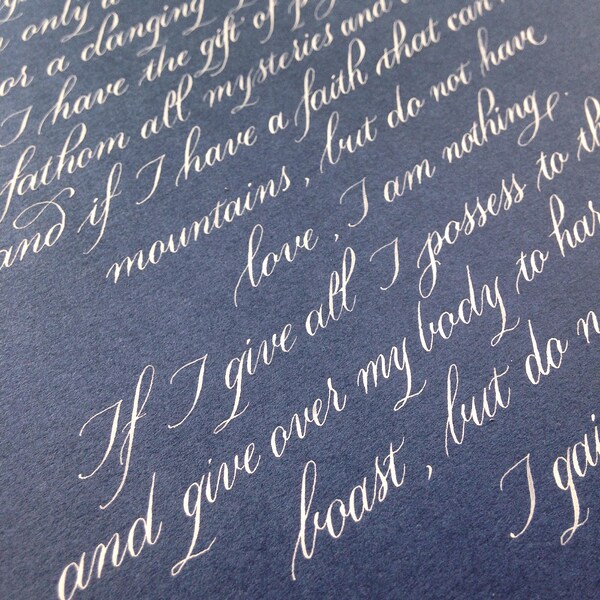 only a
or a clanging
I have the gift of
fathom all mysteries and
and if I have a faith that can
mountains, but do not have
love, I am nothing.
If I give all I possess to
and give over my body to
boast, but do
I